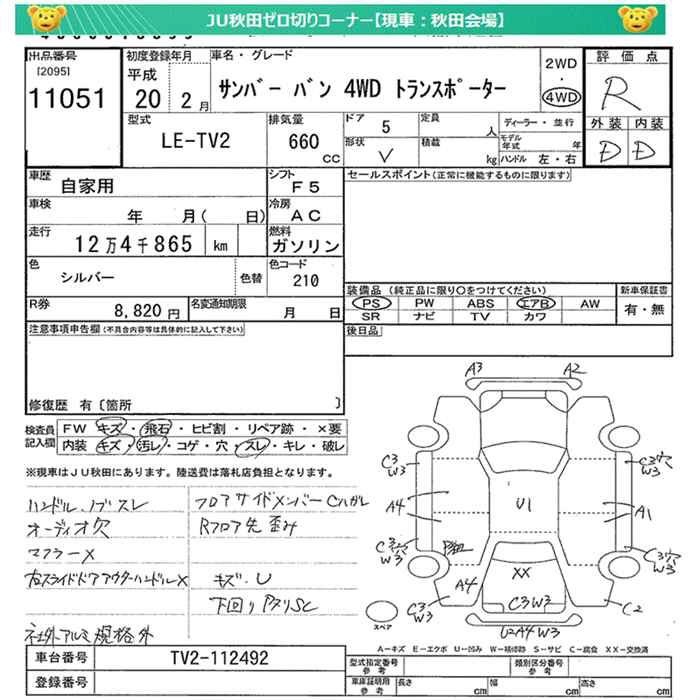 JU秋田ゼロ切りコーナー【現車：秋田会場】
出品番号
[2095]
11051
初度登録年月
平成
20 2 月
車名・グレード
サンバー バン 4WD トランスポーター
2WD
・
4WD
評価点
R
外装 内装
D D
型式
LE-TV2
排気量
660
CC
ドア 5
定員 人
形状 V
積載 kg
ディーラー・並行
モデル年式 年
ハンドル 左・右
車歴
自家用
シフト
F5
車検
年 月( 日)
冷房
AC
走行
12万4千865 km
燃料
ガソリン
色
シルバー
色替
色コード
210
R券
8,820円
名変通知期限
月 日
セールスポイント(正常に機能するものに限ります)
装備品 (純正品に限り○をつけてください)
PS PW ABS エアB AW
SR ナビ TV カワ
新車保証書
有・無
後日品
注意事項申告欄(不具合内容等は具体的に記入して下さい)
修復歴 有〔箇所 〕
検査員
記入欄
FW キズ・飛石・ヒビ割・リペア跡・×要
内装 キズ・汚レ・コゲ・穴・スレ・キレ・破レ
※現車はJU秋田にあります。陸送費は落札店負担となります。
ハンドル、ノブスレ
オーディオ欠
マフラーX
右スライドドアアウターハンドルX
社外アルミ規格外
フロアサイドメンバーCハガレ
Rフロア先歪み
キズ・U
下回りPタリSC
A3
A2
C3
W3
C3穴
W3
A4
U1
A1
C3穴
W3
C3穴
W3
A4
XX
C3W3
C3
W3
C2
U2A4W3
スペア
A－キズ E－エクボ U－凹み W－補修跡 S－サビ C－腐食 XX－交換済
車台番号
TV2-112492
登録番号
型式指定番号
参考
類別区分番号
参考
車庫証明用
参考
長さ cm
幅 cm
高さ cm